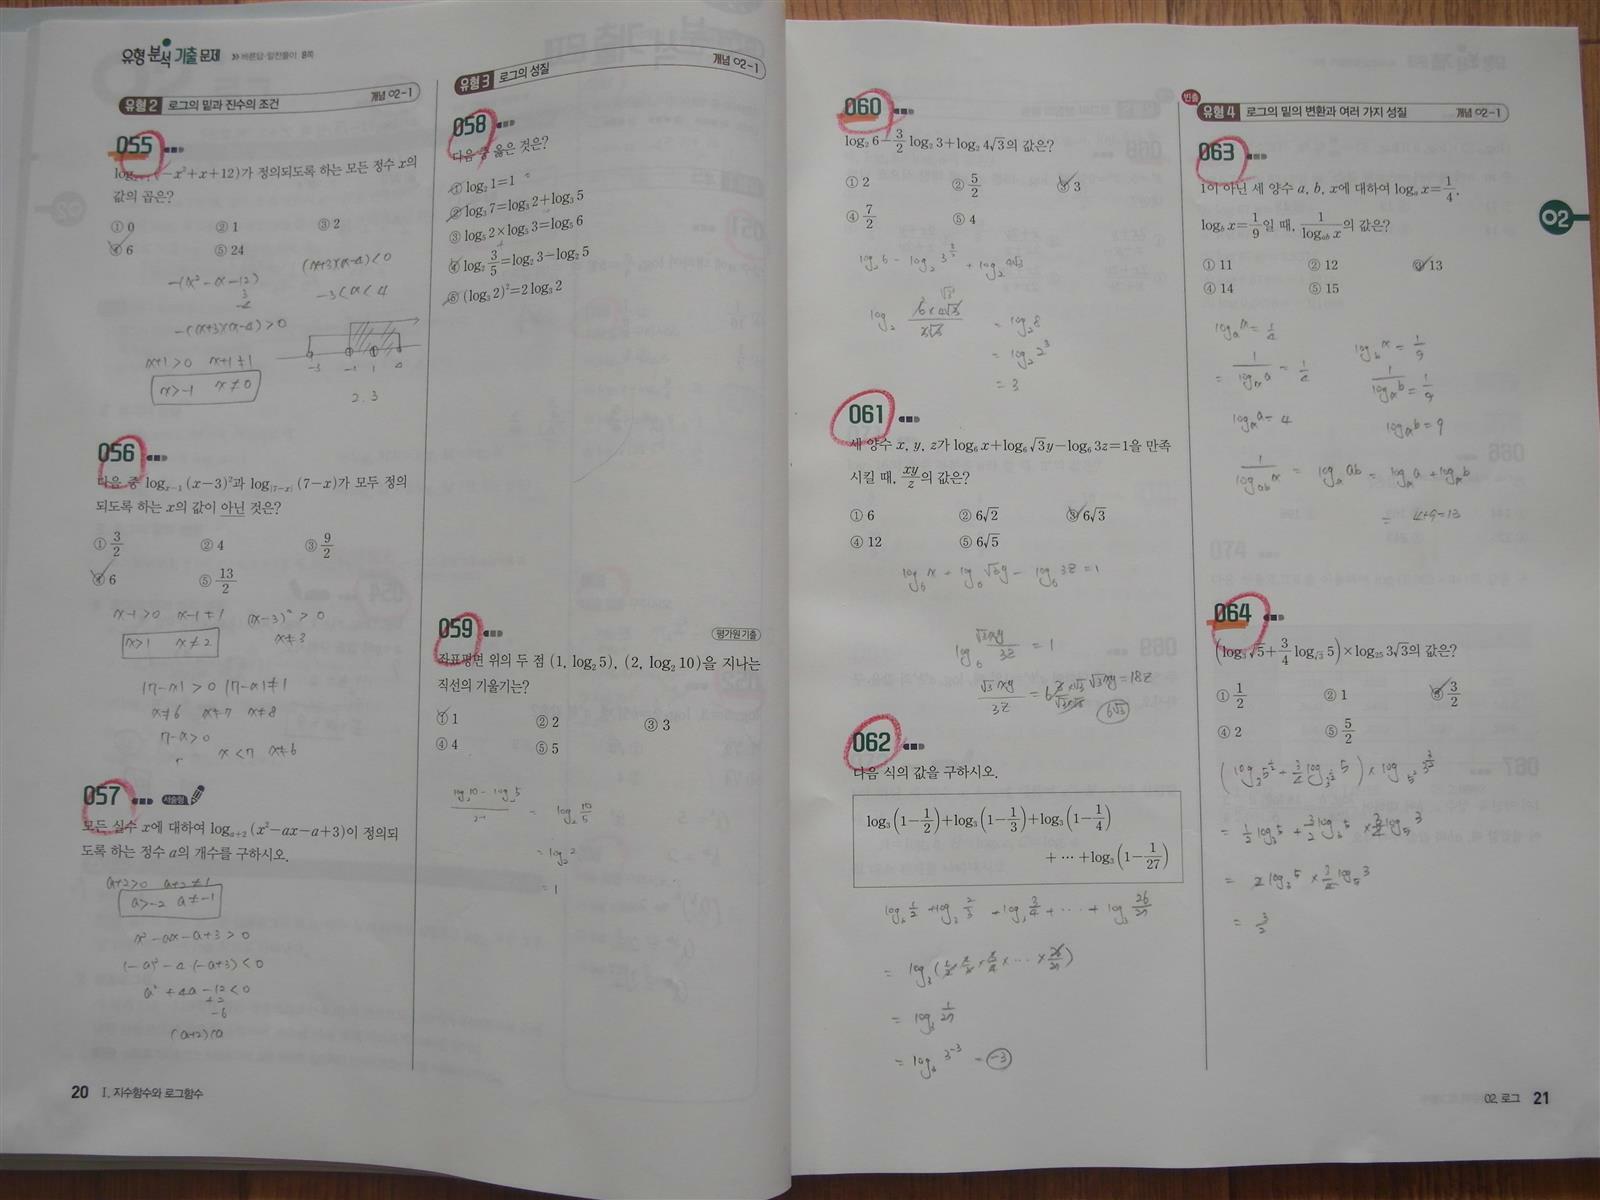 유형 분석 기출 문제 ≫ 바른답·알찬풀이 8쪽
유형 2 로그의 밑과 진수의 조건 개념 02-1
055
(−x²+x+12)가 정의되도록 하는 모든 정수 x의
값의 곱은?
① 0 ② 1 ③ 2
④ 6 ⑤ 24
−(x²−x−12)
−(x+3)(x−4)>0
(x+3)(x−4)<0
−3<x<4
x+1>0 x+1≠1
x>−1 x≠0
−3 −1 1 4
2. 3
056
다음 중 logₓ₋₁(x−3)²과 log|7−x|(7−x)가 모두 정의
되도록 하는 x의 값이 아닌 것은?
① 3/2 ② 4 ③ 9/2
④ 6 ⑤ 13/2
x−1>0 x−1≠1 (x−3)²>0
x>1 x≠2 x≠3
|7−x|>0 |7−x|≠1
x≠6 x≠7 x≠8
7−x>0
x<7 x≠6
057 서술형
모든 실수 x에 대하여 logₐ₊₂(x²−ax−a+3)이 정의되
도록 하는 정수 a의 개수를 구하시오.
a+2>0 a+2≠1
a>−2 a≠−1
x²−ax−a+3>0
(−a)²−4(−a+3)<0
a²+4a−12<0
+2
−6
(a+2)(a
20 Ⅰ. 지수함수와 로그함수
유형 3 로그의 성질 개념 02-1
058
다음 중 옳은 것은?
① log₂1=1
② log₃7=log₃2+log₃5
③ log₅2×log₅3=log₅6
④ log₂ 3/5=log₂3−log₂5
⑤ (log₃2)²=2log₃2
059 평가원 기출
좌표평면 위의 두 점 (1, log₂5), (2, log₂10)을 지나는
직선의 기울기는?
① 1 ② 2 ③ 3
④ 4 ⑤ 5
(log₂10−log₂5)/(2−1) = log₂ 10/5
=log₂2
=1
060
log₂6−3/2 log₂3+log₂4√3의 값은?
① 2 ② 5/2 ③ 3
④ 7/2 ⑤ 4
log₂6−log₂3^(3/2)+log₂4√3
log₂ (6×4√3)/(3√3) =log₂8
=log₂2³
=3
061
세 양수 x, y, z가 log₆x+log₆√3y−log₆3z=1을 만족
시킬 때, xy/z의 값은?
① 6 ② 6√2 ③ 6√3
④ 12 ⑤ 6√5
log₆x+log₆√3y−log₆3z=1
log₆ √3xy/3z = 1
√3xy/3z = 6 √3xy=18z
6√3
062
다음 식의 값을 구하시오.
log₃(1−1/2)+log₃(1−1/3)+log₃(1−1/4)
+ ⋯ +log₃(1−1/27)
log₃1/2+log₃2/3+log₃3/4+⋯+log₃26/27
=log₃(1/2×2/3×3/4×⋯×26/27)
=log₃1/27
=log₃3⁻³=−3
빈출
유형 4 로그의 밑의 변환과 여러 가지 성질 개념 02-1
063
1이 아닌 세 양수 a, b, x에 대하여 logₐx=1/4,
log_b x=1/9일 때, 1/log_ab x의 값은?
① 11 ② 12 ③ 13
④ 14 ⑤ 15
logₐx=1/4
=1/logₓa=1/4
logₓa=4
log_b x=1/9
1/logₓb=1/9
logₓb=9
1/log_ab x = logₓab = logₓa+logₓb
= 4+9=13
064
(log₃√5+3/4 log_√3 5)×log₂₅3√3의 값은?
① 1/2 ② 1 ③ 3/2
④ 2 ⑤ 5/2
(log₃5^(1/2)+3/4 log_3^(1/2) 5)×log_5² 3^(3/2)
=1/2 log₃5+3/2 log₃5×3/4 log₅3
=2log₃5×3/4 log₅3
=3/2
02
02. 로그 21